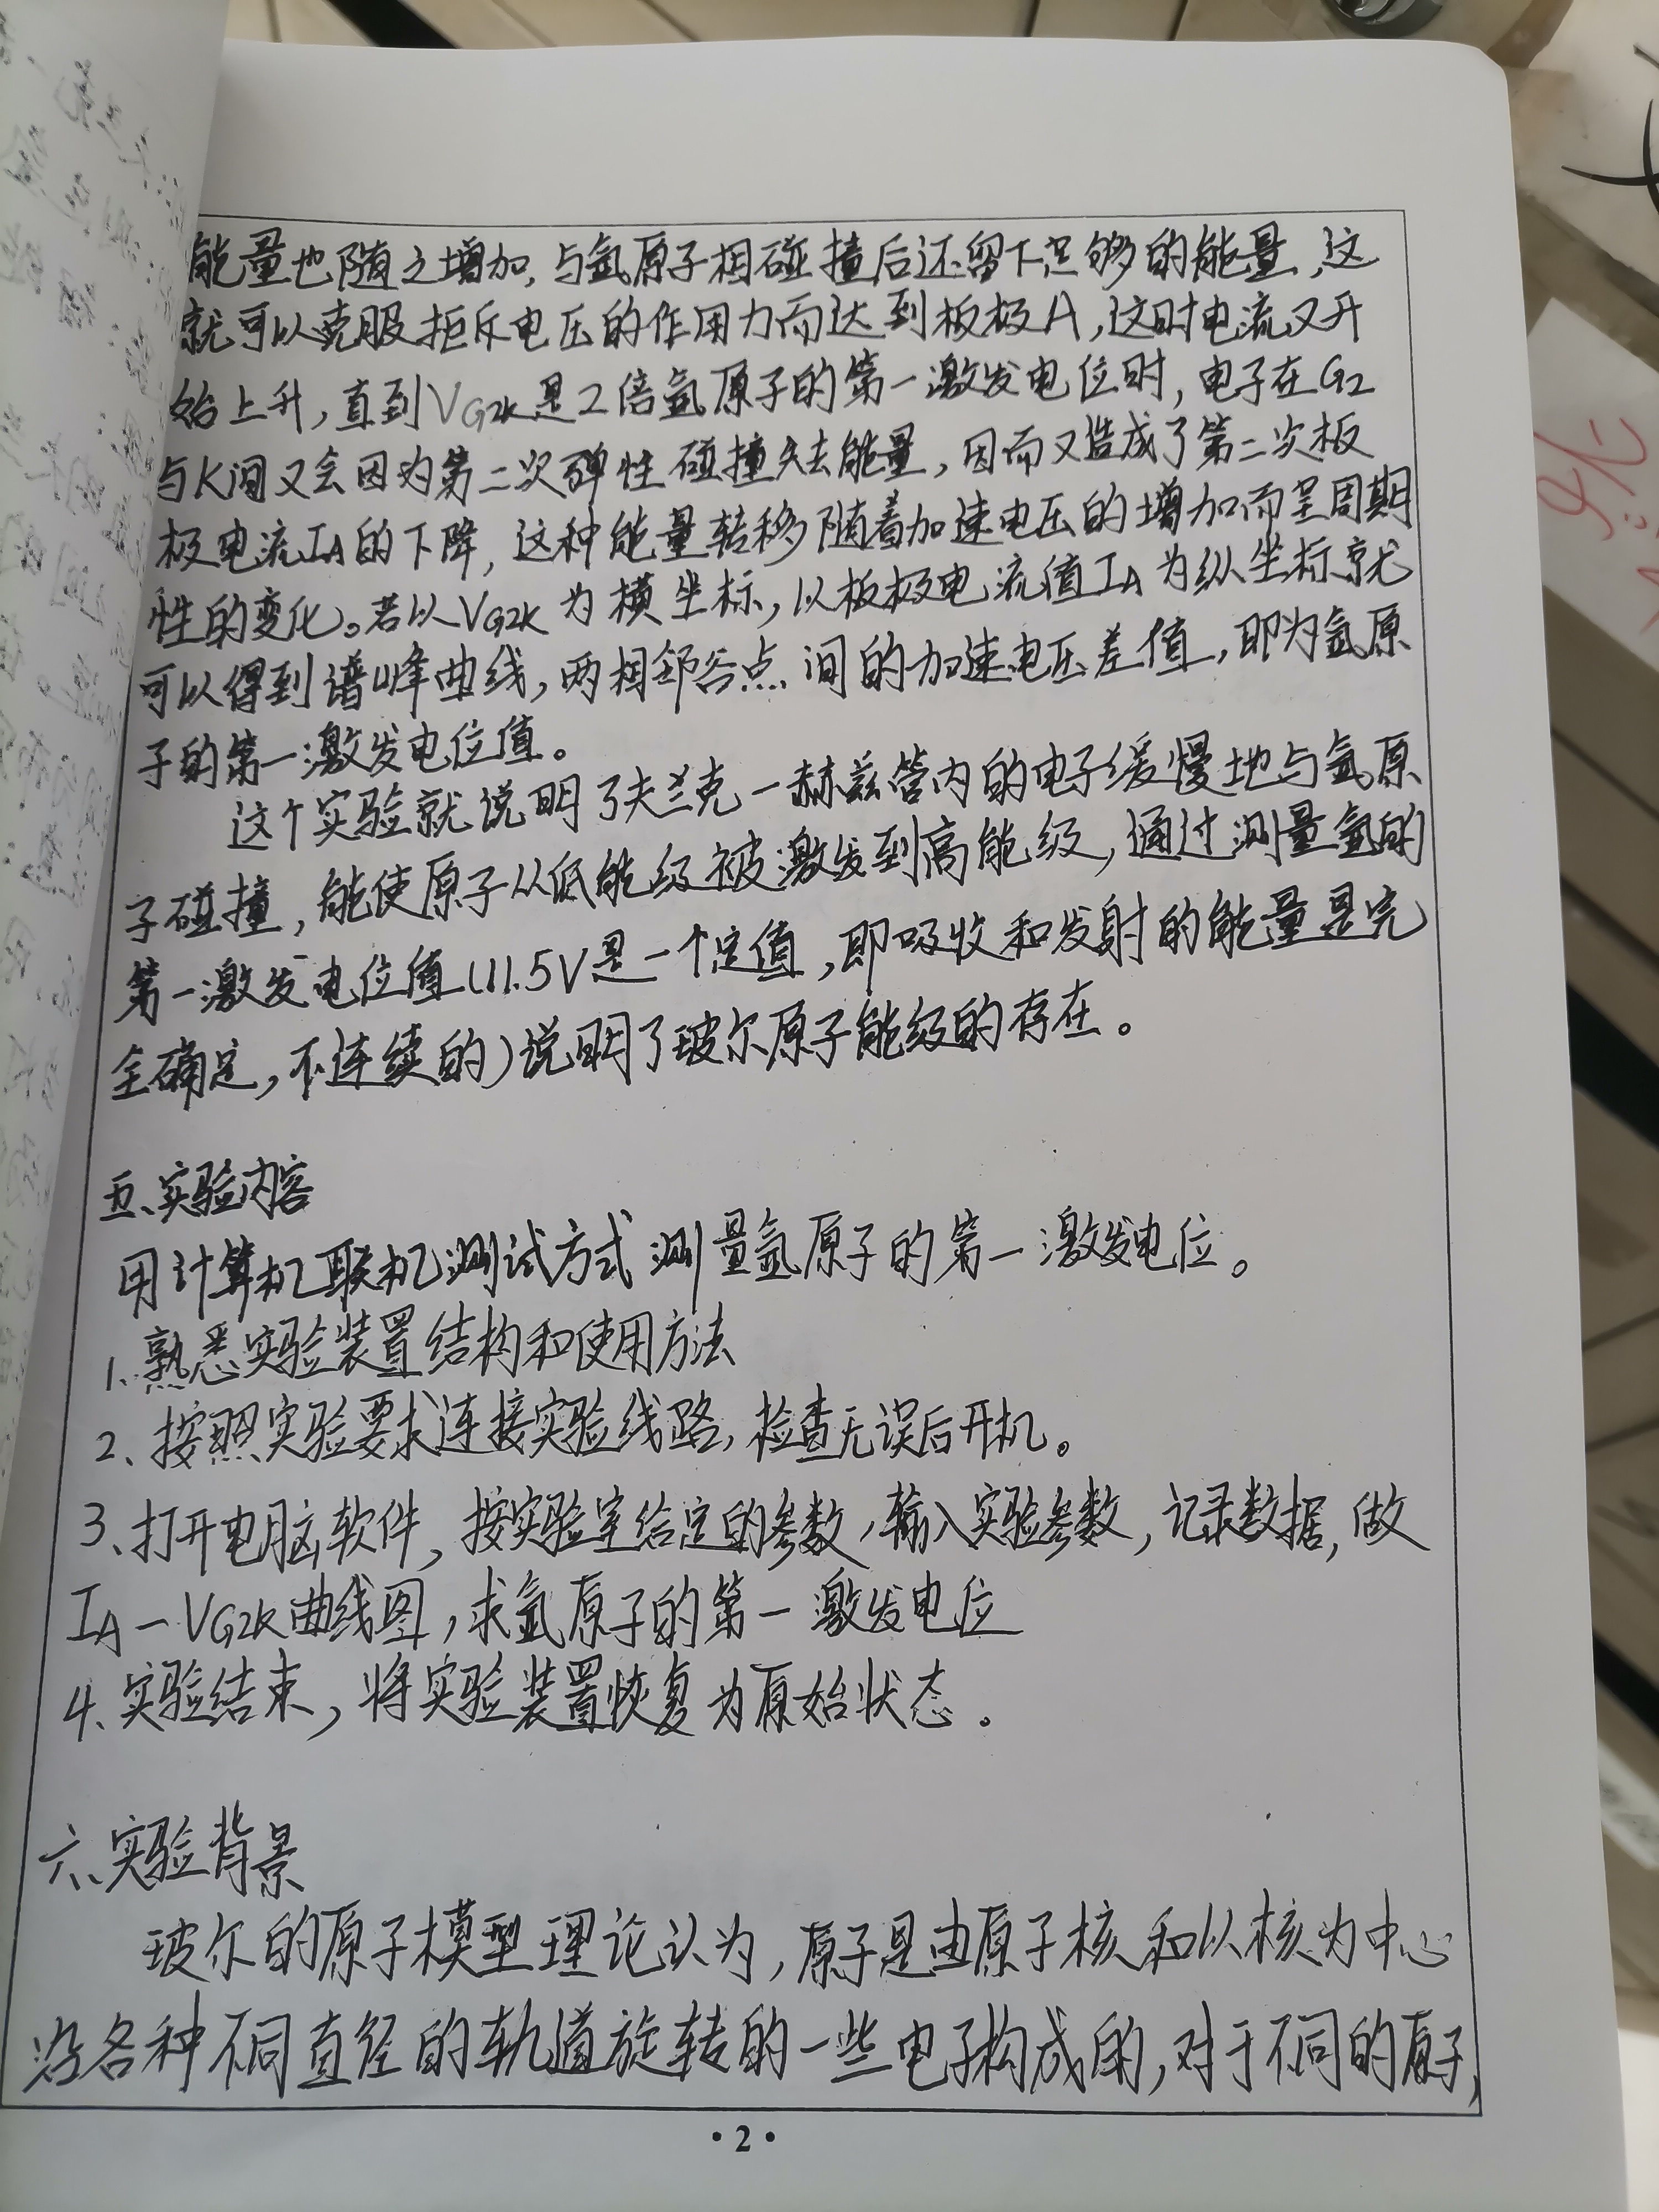 能量也随之增加,与氩原子相碰撞后还留下足够的能量,这
就可以克服拒斥电压的作用力而达到板极A,这时电流又开
始上升,直到VG2K是2倍氩原子的第一激发电位时,电子在G2
与K间又会因为第二次弹性碰撞失去能量,因而又造成了第二次板
极电流IA的下降,这种能量转移随着加速电压的增加而呈周期
性的变化。若以VG2K为横坐标,以板极电流值IA为纵坐标就
可以得到谱峰曲线,两相邻谷点间的加速电压差值,即为氩原
子的第一激发电位值。
这个实验就说明了夫兰克一赫兹管内的电子缓慢地与氩原
子碰撞,能使原子从低能级被激发到高能级,通过测量氩的
第一激发电位值(11.5V是一个定值,即吸收和发射的能量是完
全确定,不连续的)说明了玻尔原子能级的存在。
五、实验内容
用计算机联机测试方式测量氩原子的第一激发电位。
1、熟悉实验装置结构和使用方法
2、按照实验要求连接实验线路,检查无误后开机。
3、打开电脑软件,按实验室给定的参数,输入实验参数,记录数据,做
IA-VG2K曲线图,求氩原子的第一激发电位
4、实验结束,将实验装置恢复为原始状态。
六、实验背景
玻尔的原子模型理论认为,原子是由原子核和以核为中心
沿各种不同直径的轨道旋转的一些电子构成的,对于不同的原子,
·2·